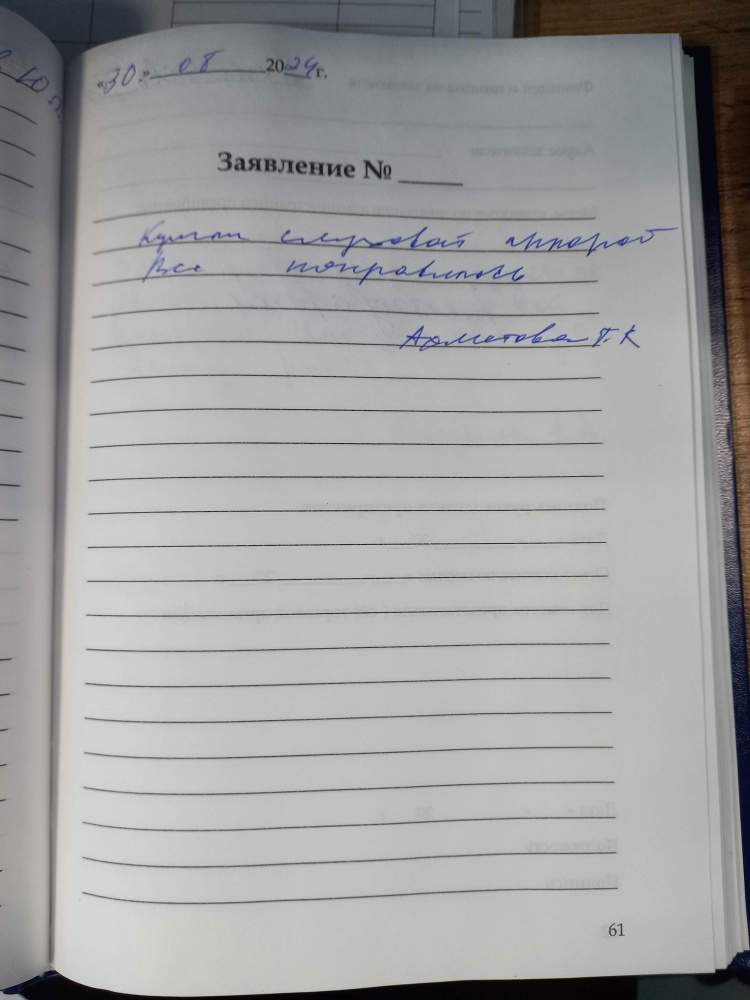 «30.» 08 2024 г.
Заявление №
Купили слуховой аппарат
Все понравилось
Ахметова Г. К
61